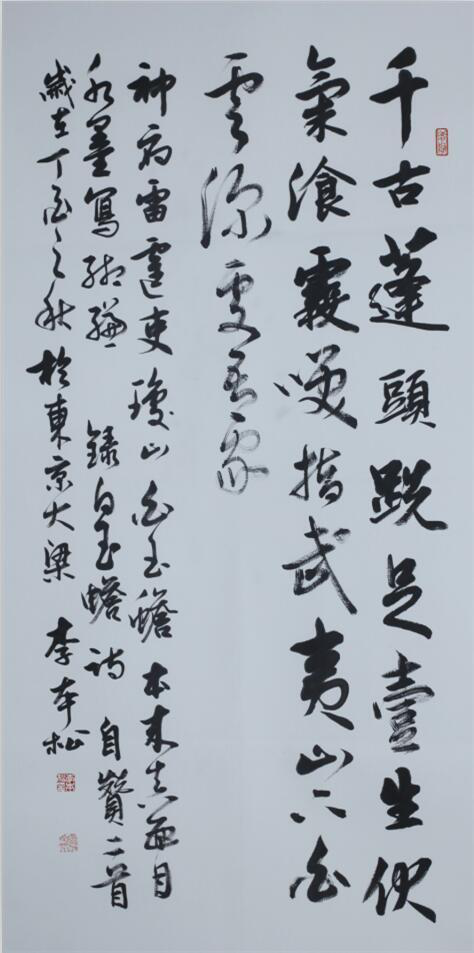 千古蓬頭跣足壹生伏
氣湌霞咲指武夷山下白
雲深處吾家
神府雷霆吏瓊山白玉蟾本來真面目
水墨寫緗縑 錄白玉蟾詩自贊二首
歲在丁酉之秋於東京大梁 李本松